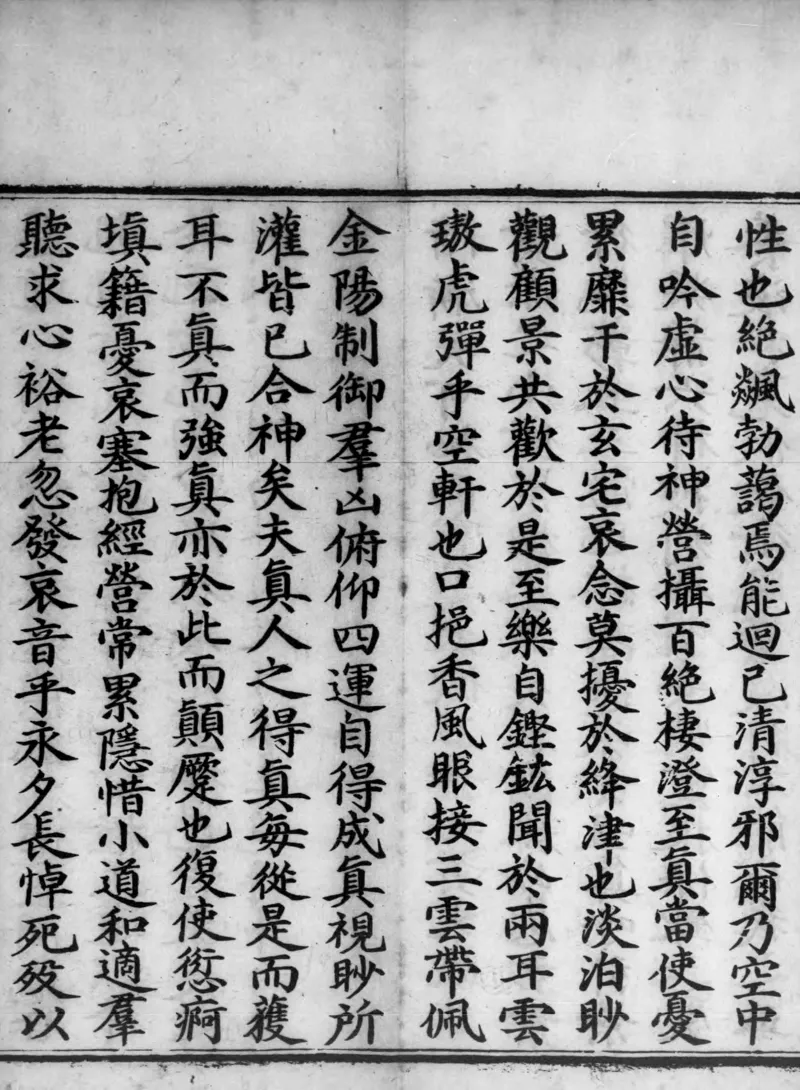 性也絶飊勃藹焉能迴已清淳邪爾乃空中
自吟虛心待神營攝百絶棲澄至真當使憂
累靡干於玄宅哀念莫擾於絳津也淡泊眇
觀顧景共歡於是至樂自鏗鈜聞於兩耳雲
璈虎彈乎空軒也口挹香風眼接三雲帶佩
金陽制御羣凶俯仰四運自得成真視眇所
灌皆已合神矣夫真人之得真每從是而𫉬
耳不真而強真亦於此而顛蹷也復使愆痾
填籍憂哀塞抱經營常累隱惜小道和適羣
聽求心裕老忽發哀音乎永夕長悼死殁以